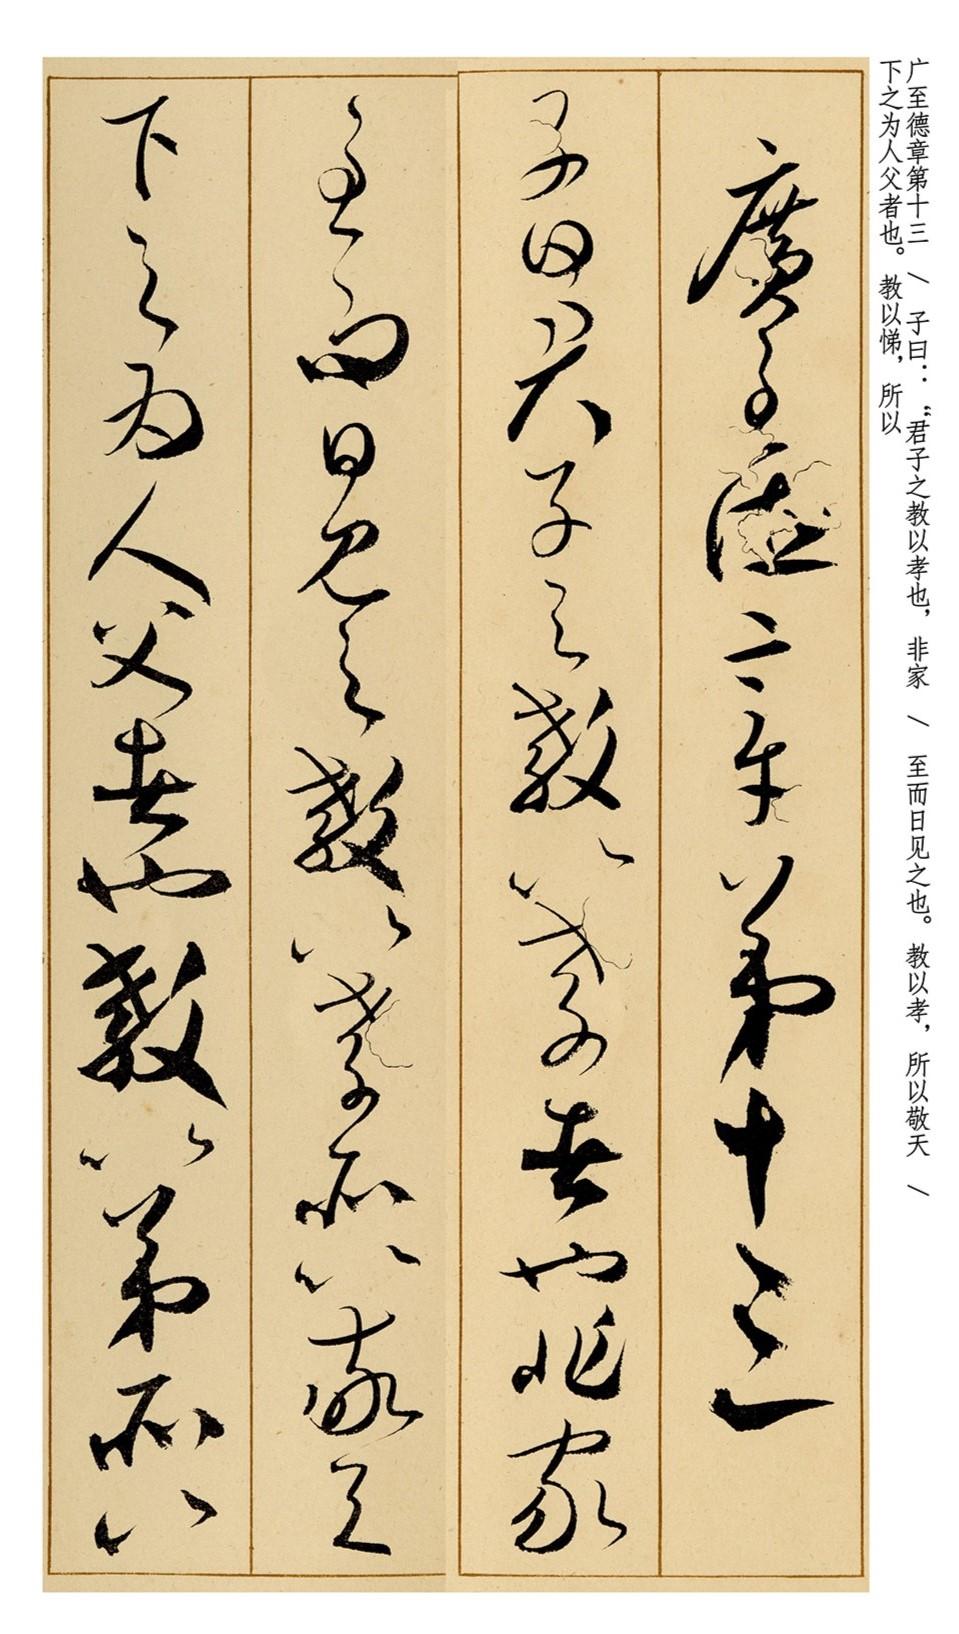 广至德章第十三 \ 子曰：“君子之教以孝也，非家 \ 至而日见之也。教以孝，所以敬天 \
下之为人父者也。教以悌，所以
廣至德章第十三
子曰君子之教以孝者也非家
至而日見之教以孝所以敬天
下之为人父者也教以弟所以